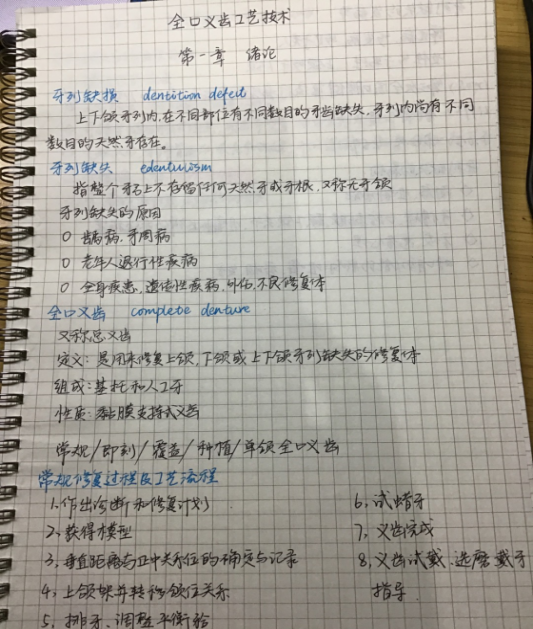 全口义齿工艺技术
第一章 绪论
牙列缺损 dentition defect
上下颌牙列内,在不同部位有不同数目的牙齿缺失,牙列内尚有不同
数目的天然牙存在。
牙列缺失 edentulism
指整个牙弓上不存留任何天然牙或牙根,又称无牙颌
牙列缺失的原因
○ 龋病,牙周病
○ 老年人退行性疾病
○ 全身疾患,遗传性疾病,外伤,不良修复体
全口义齿 complete denture
又称总义齿
定义:是用来修复上颌,下颌或上下颌牙列缺失的修复体
组成:基托和人工牙
性质:黏膜支持式义齿
常规/即刻/覆盖/种植/单颌全口义齿
常规修复过程及工艺流程
1,作出诊断和修复计划
2,获得模型
3,垂直距离与正中关系位的确定与记录
4,上颌架并转移颌位关系
5,排牙、调整平衡𬌗
6,试蜡牙
7,义齿完成
8,义齿试戴、选磨、戴牙
指导